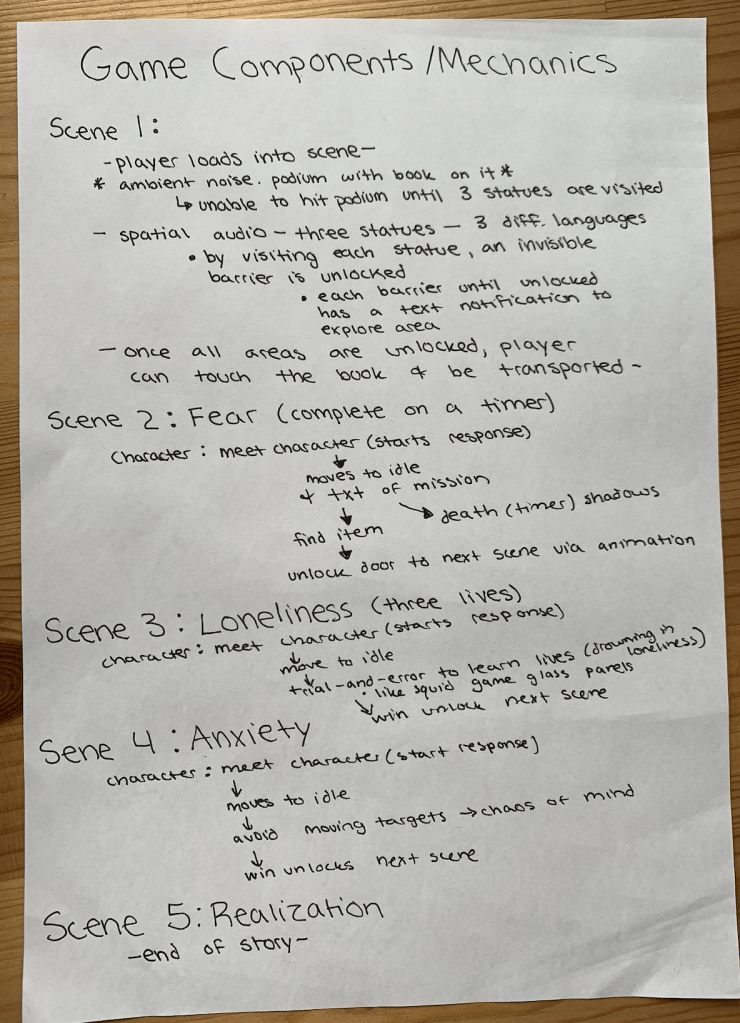 Game Components/Mechanics
Scene 1:
-player loads into scene-
* ambient noise. podium with book on it *
↳ unable to hit podium until 3 statues are visited
- spatial audio - three statues - 3 diff. languages
• by visiting each statue, an invisible
barrier is unlocked
• each barrier until unlocked
has a text notification to
explore area
- once all areas are unlocked, player
can touch the book & be transported -
Scene 2: Fear (complete on a timer)
Character: meet character (starts response)
↓
moves to idle
& txt of mission
↓ ↘ death (timer) shadows
find item
↓
unlock door to next scene via animation
Scene 3: Loneliness (three lives)
character: meet character (starts response)
↓
move to idle
↓
trial-and-error to learn lives (drowning in
loneliness)
• like squid game glass panels
↘ win unlock next scene
Sene 4: Anxiety
character: meet character (start response)
↓
moves to idle
↓
avoid moving targets → chaos of mind
↓
win unlocks next scene
Scene 5: Realization
-end of story-